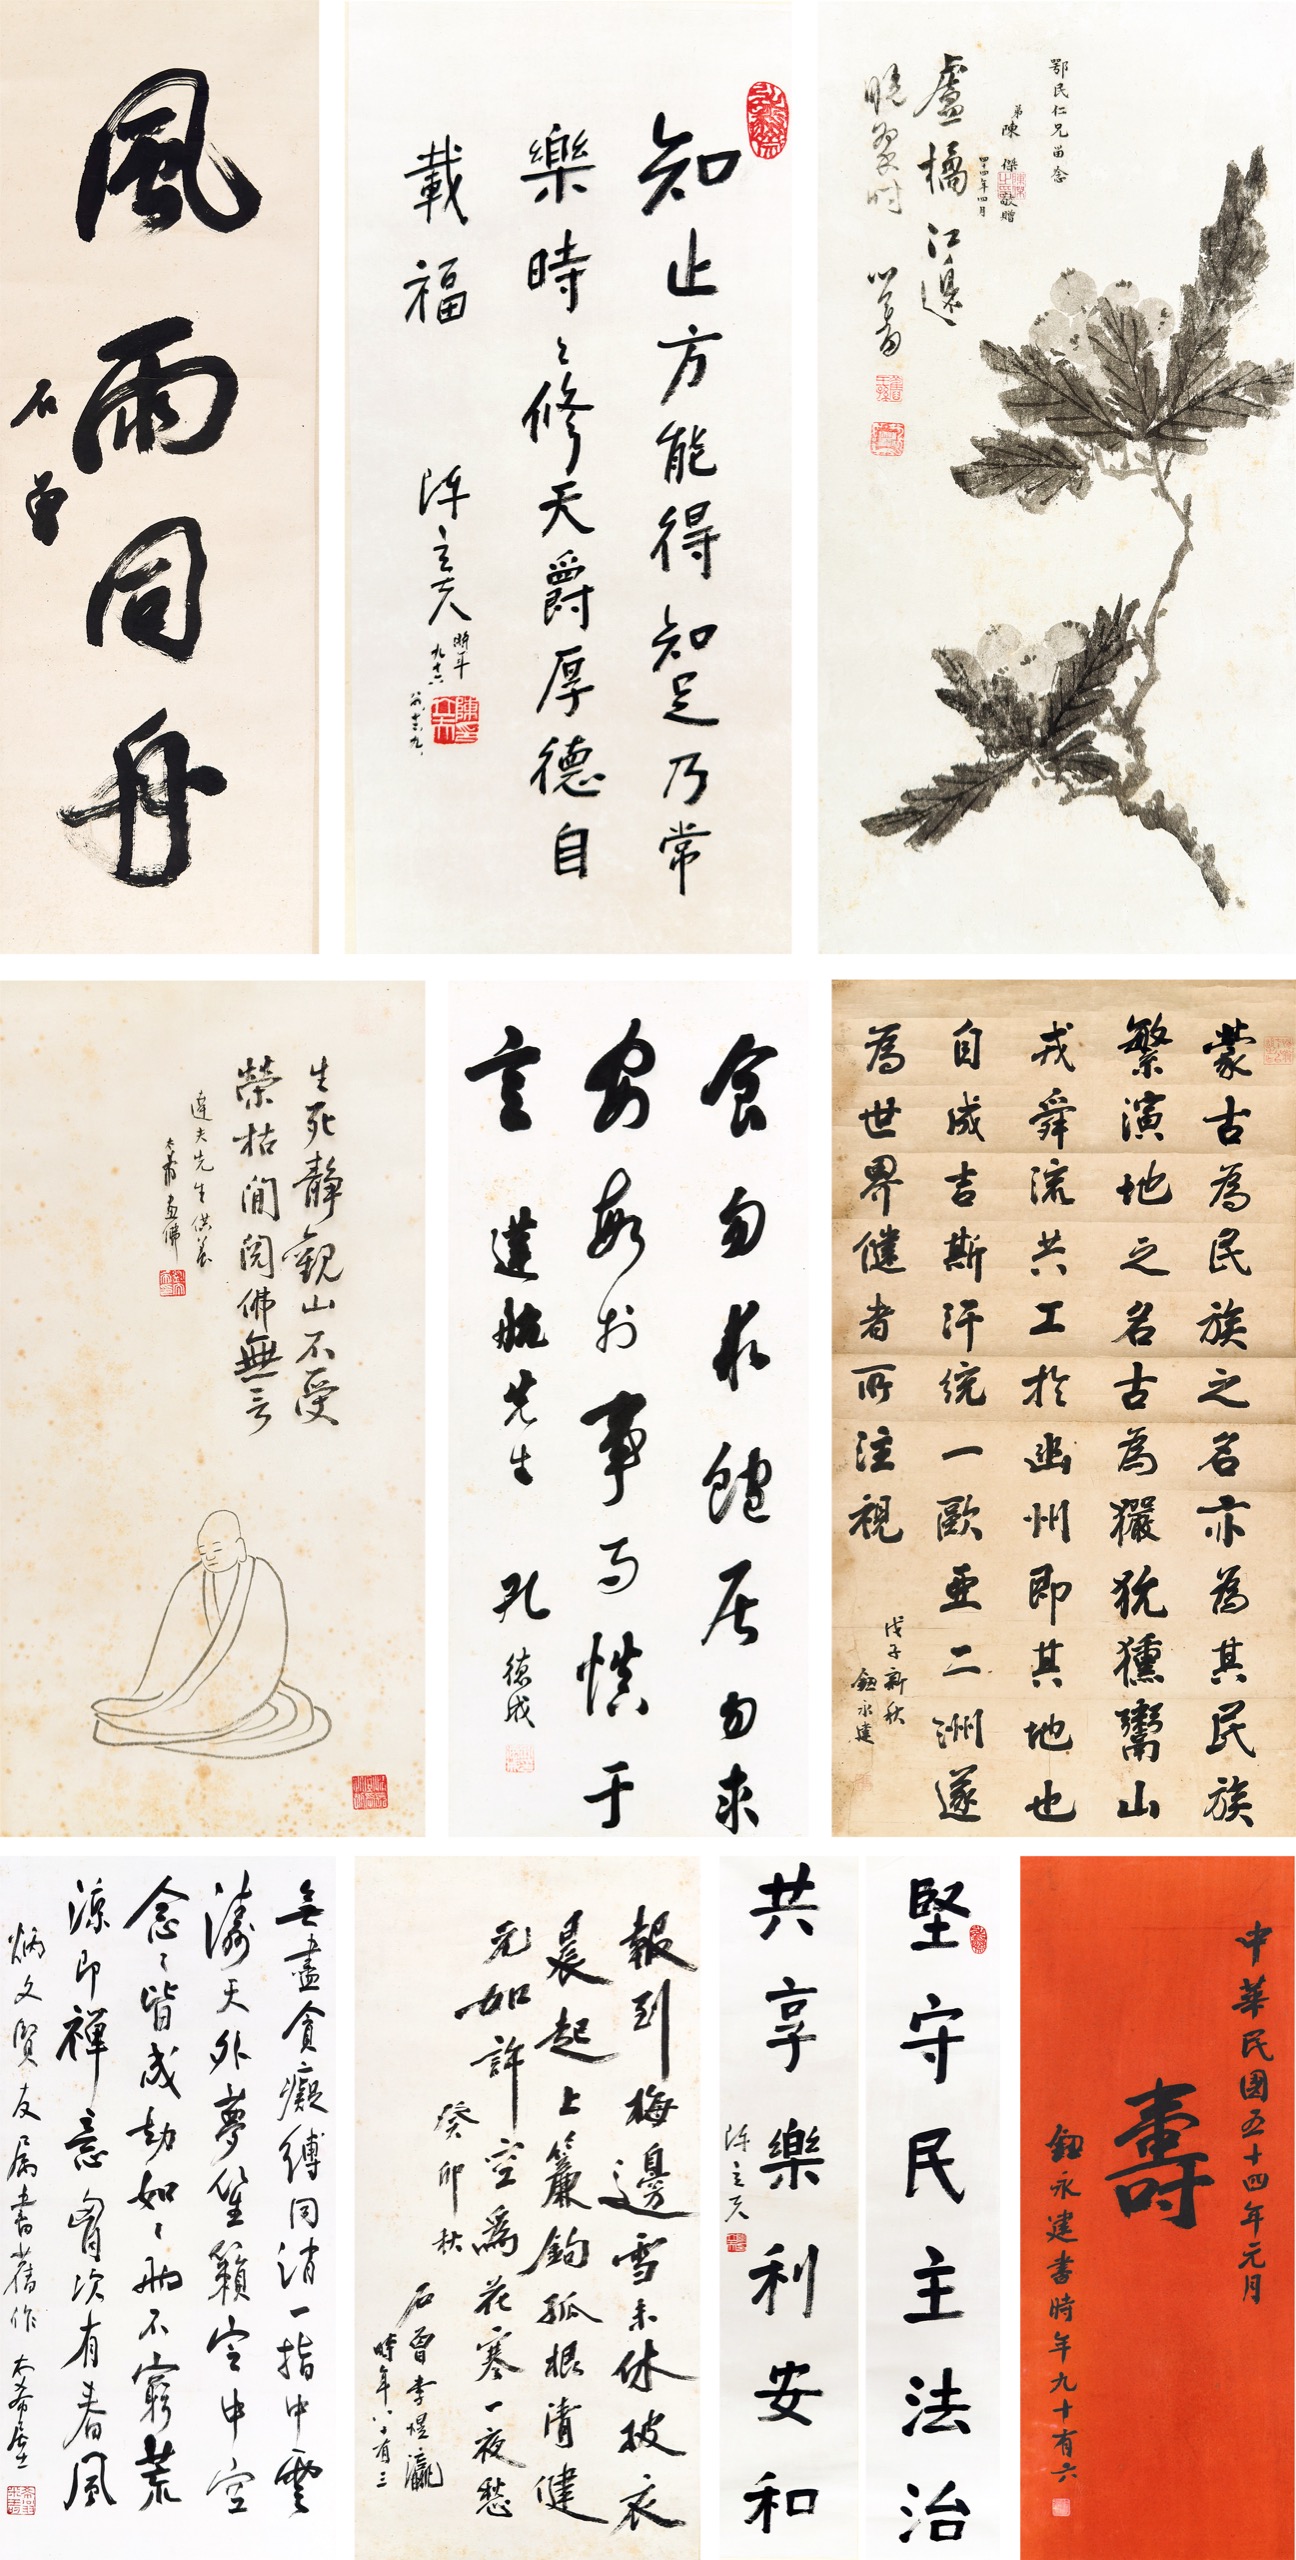 風雨同舟
石曾
知止方能得知足乃常
樂時〻修天爵厚德自
載福
陳立夫
時年
九十六
鄂民仁兄留念
弟陳傑敬贈
四十四年四月
盧橘江邊
曉翠時
心畬
生死靜觀山不受
榮枯閒閱佛無言
達夫先生供養
太希畫佛
食勿求飽居勿求
安敏於事而慎于
言
達航先生
孔德成
蒙古為民族之名亦為其民族
繁演地之名古為玁狁獯鬻山
戎舜流共工於幽州即其地也
自成吉斯汗統一歐亞二洲遂
為世界健者所注視
戊子新秋
鈕永建
無盡貪癡縛同消一指中雲
濤天外夢笙籟空中空
念〻皆成劫如〻不窮荒
涼即禪意胸次有春風
炳文賢友屬書舊作
太希居士
報到梅邊雪未休披衣
晨起上簾鉤孤根清健
元如許空為花寒一夜愁
癸卯秋
石曾李煜瀛
時年八十有三
堅守民主法治
共享樂利安和
陳立夫
中華民國五十四年元月
壽
鈕永建書時年九十有六